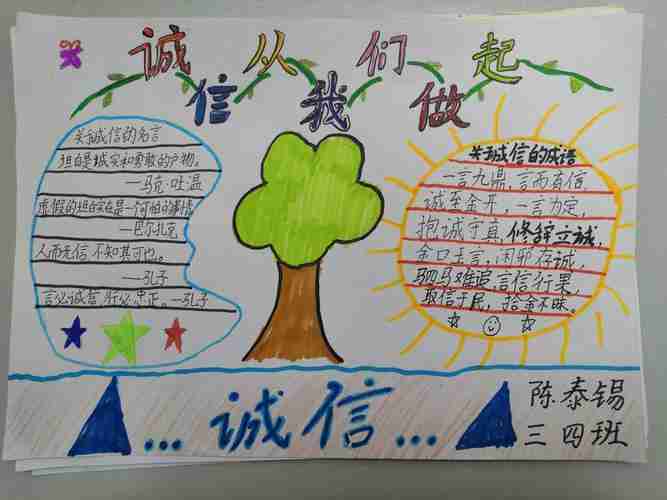 诚信从我们做起
关于诚信的名言
坦白是诚实和勇敢的产物。
——马克·吐温
虚假的坦白实在是一个可怕的事情
——巴尔扎克
人而无信不知其可也。
——孔子
言必诚信,行必忠正。——孔子
关于诚信的成语
一言九鼎,言而有信
诚至金开,一言为定,
抱诚守真,修辞立诚,
金口玉言,闲邪存诚,
驷马难追,言信行果,
取信于民,拾金不昧。
...诚信...
陈泰锡
三四班